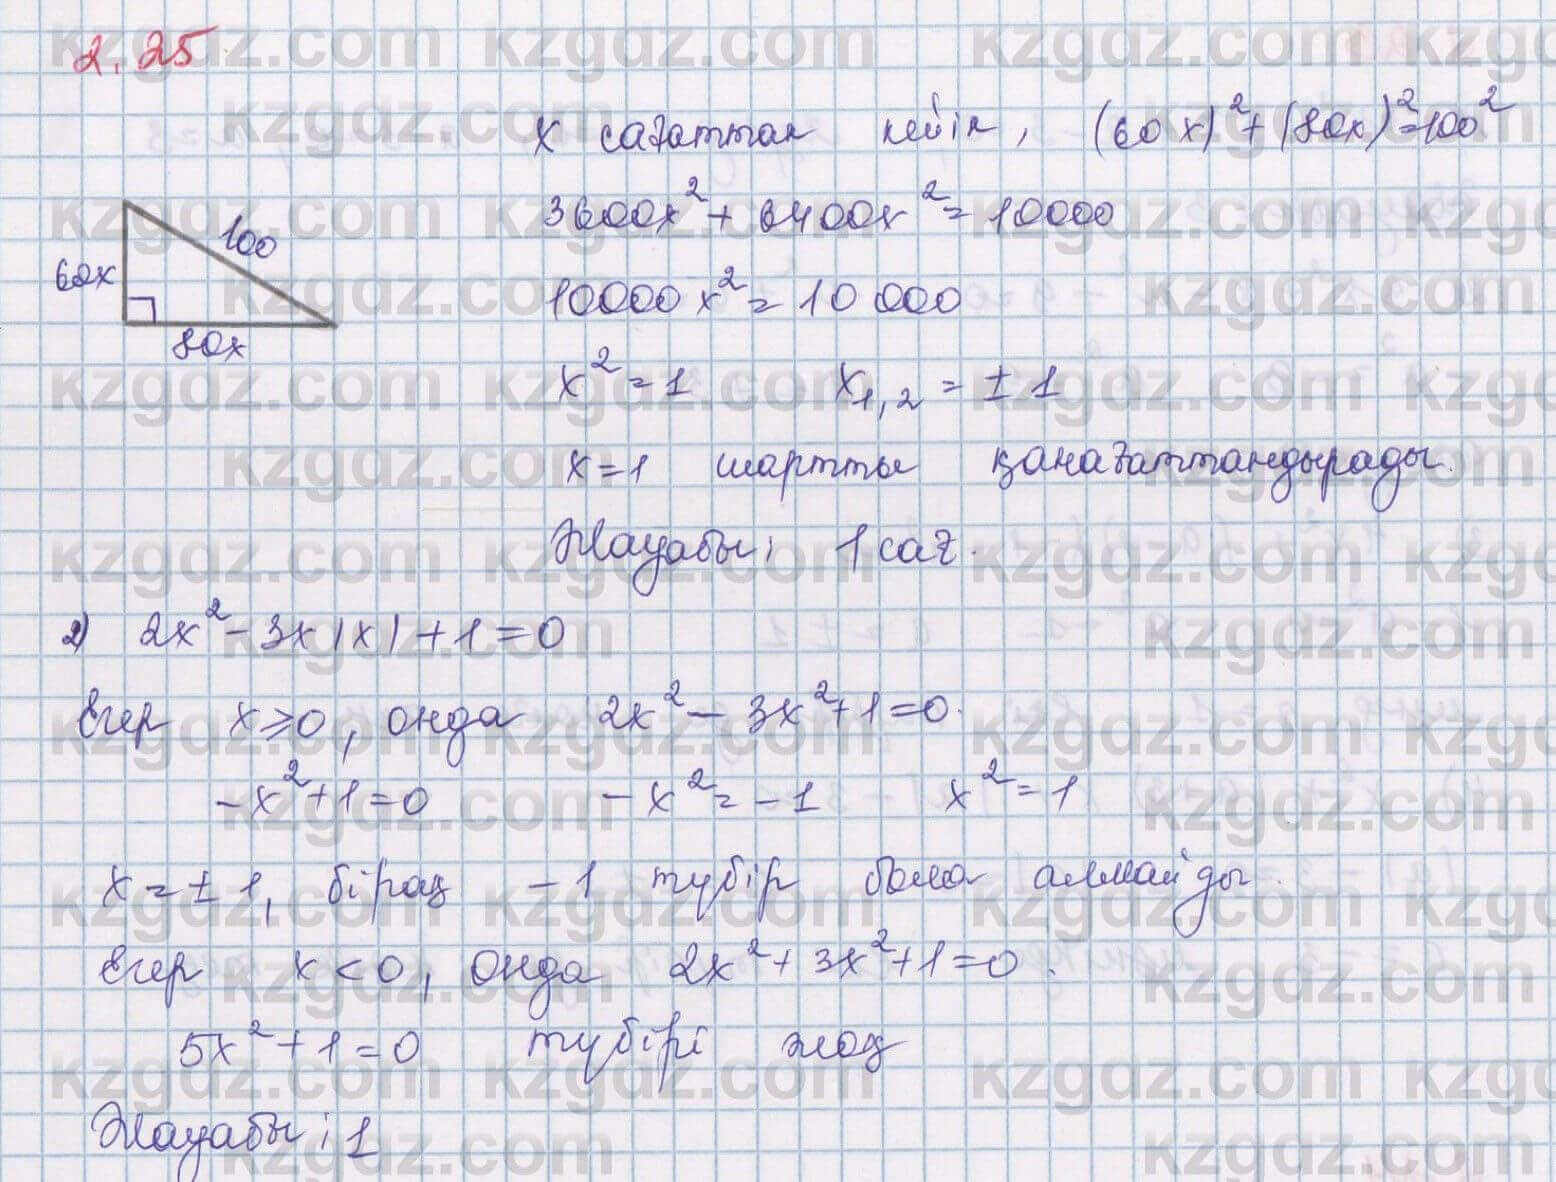 2.25
x сағаттан кейін, (60x)²+(80x)²=100²
3600x²+6400x²=10000
100
60x
80x
10000x²=10 000
x²=1 x₁,₂=±1
x=1 шартты қанағаттандырады.
Жауабы: 1 сағ.
2) 2x²-3x|x|+1=0
Егер x≥0, онда 2x²-3x²+1=0.
-x²+1=0 -x²=-1 x²=1
x=±1, бірақ -1 түбір бола алмайды.
Егер x<0, онда 2x²+3x²+1=0.
5x²+1=0 түбірі жоқ
Жауабы: 1
kzgdz.com